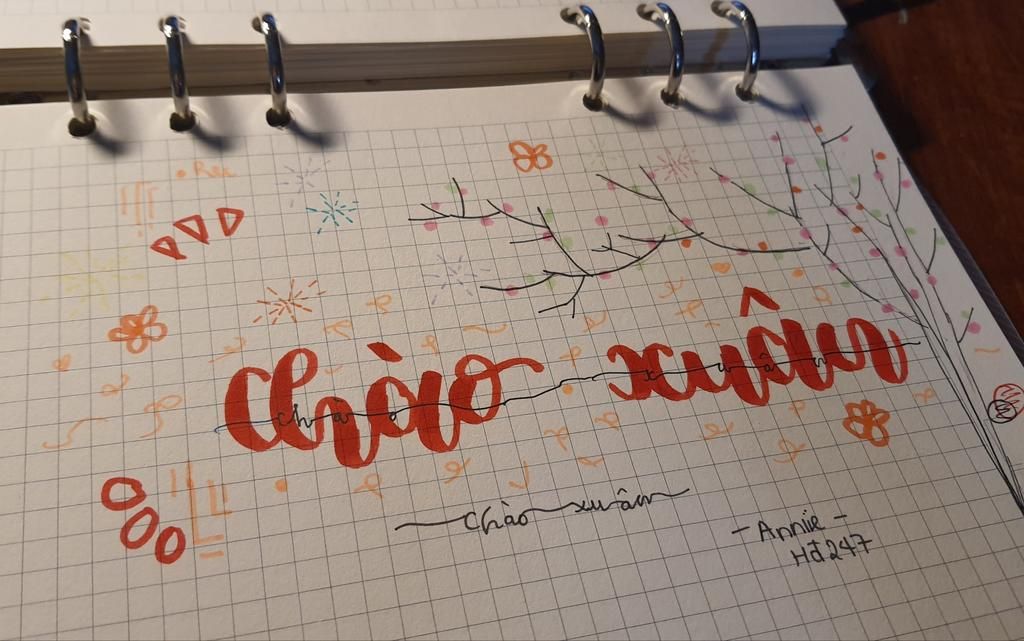 Rec
Chào xuân
chào xuân
Chào xuân
- Anniie -
Hd247